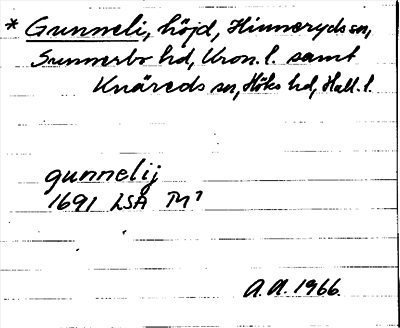 * Gunneli, höjd, Hinneryds sn,
Sunnerbo hd, Kron. l. samt
Knäreds sn, Höks hd, Hall. l.
gunnelij
1691 LSA M 7
A. A. 1966.